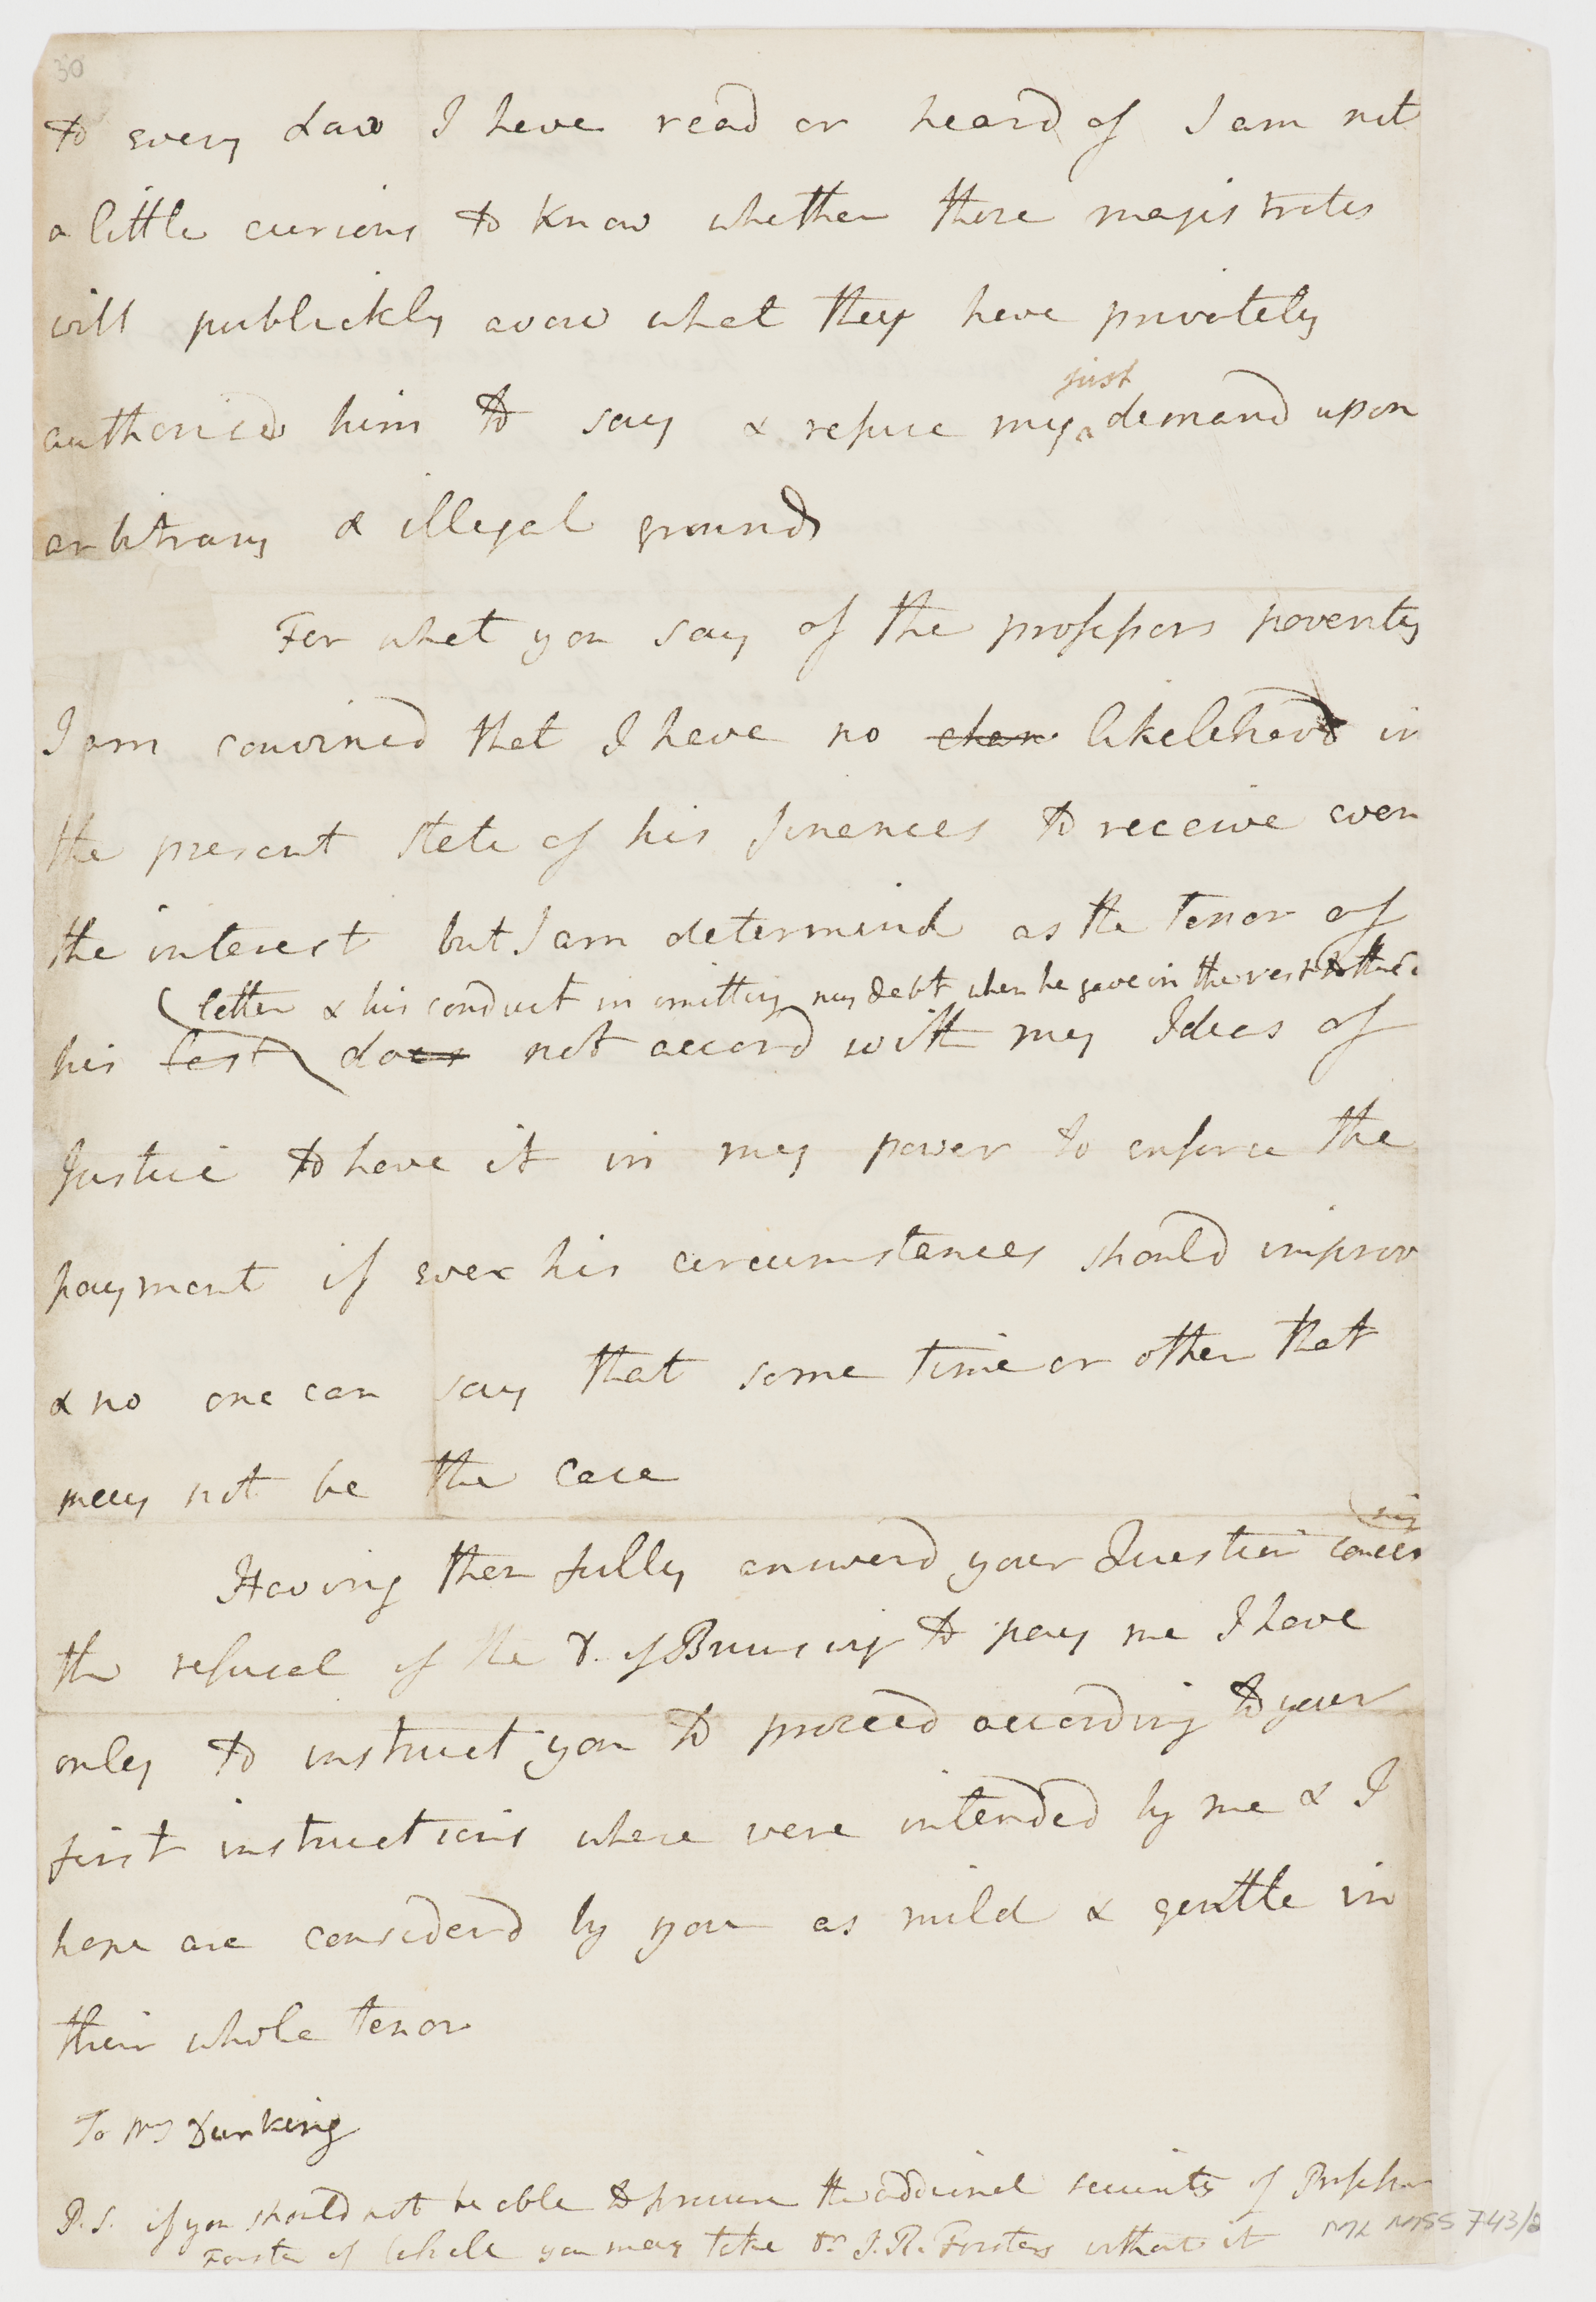 30
to every Law I have read or heard of I am not
a little curious to Know whether those magistrates
will publickly avow what they have privately
just
authorised him to say & refuse my ^ demand upon
arbitrary & illegal grounds
For what you say of the professors poverty
I am convinced that I have no chan likelihood in
the present state of his finances to receive even
the interest but I am determind as the Tenor of
letter & his conduct in omitting my debt when he gave in the rest
his last does not accord with my Ideas of
Justice to have it in my power to enforce the
payment if ever his circumstances should improv
& no one can say that some time or other that
may not be the case
ning
Having then fully answerd your Question concer
the refusal of the D. of Brunswig to pay me I have
only to instruct you to proceed according to your
first instructions where were intended by me & I
hope are considerd by you as mild & gentle in
their whole tenor
To Mr Durking
P.S. if you should not be able to procure the security of Professor
Forster of you may take Dr J. R. Forsters without it
ML MSS 743/2